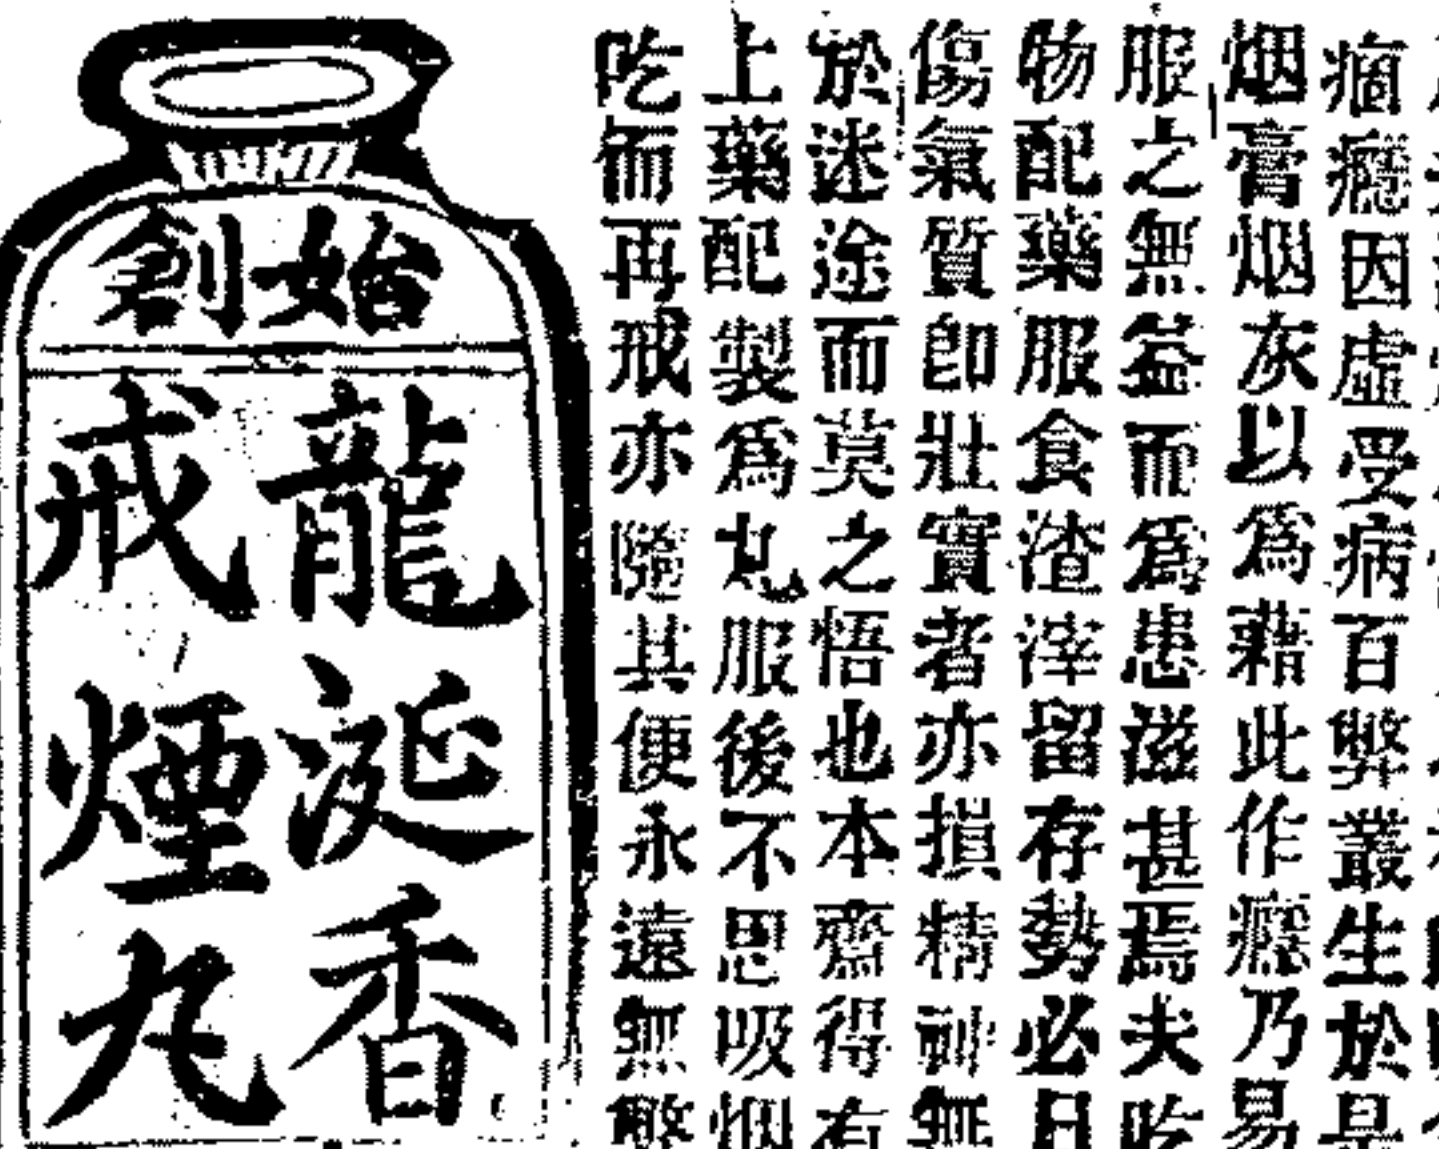 痼癮因虛受病百弊叢生於是
烟膏烟灰以爲藉此作癮乃易
服之無益而爲患滋甚焉夫吃
物配藥服食渣滓留存勢必日
傷氣質卽壯實者亦損精神無
於迷途而莫之悟也本齋得有
上藥配製爲丸服後不思吸烟
吃而再戒亦隨其便永遠無弊
始創
龍涎香
戒煙丸